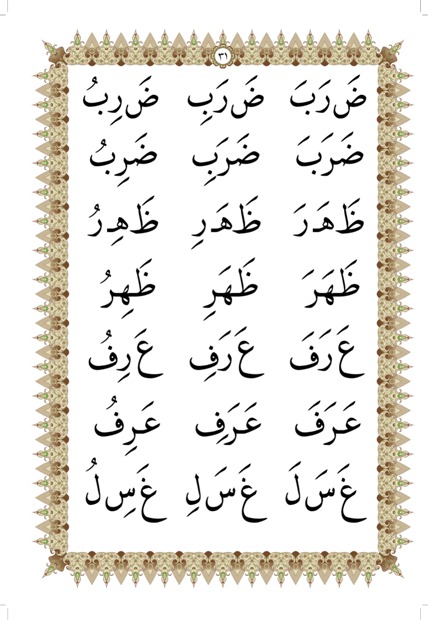 ٣١
ضَ رَبَ ضَ رَبِ ضَ رِبُ
ضَرَبَ ضَرَبِ ضَرِبُ
ظَ هَ رَ ظَ هَ رِ ظَ هِ رُ
ظَهَرَ ظَهَرِ ظَهِرُ
عَ رَفَ عَ رَفِ عَ رِفُ
عَرَفَ عَرَفِ عَرِفُ
غَ سَ لَ غَ سَ لِ غَ سِ لُ